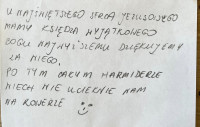 U NAJŚWIĘTSZEGO SERCA JEZUSOWEGO
MAMY KSIĘDZA WYJĄTKOWEGO
BOGU NAJWYŻSZEMU DZIĘKUJEMY
ZA NIEGO,
PO TYM CAŁYM HARMIDERZE
NIECH NIE UCIEKNIE NAM
NA ROWERZE